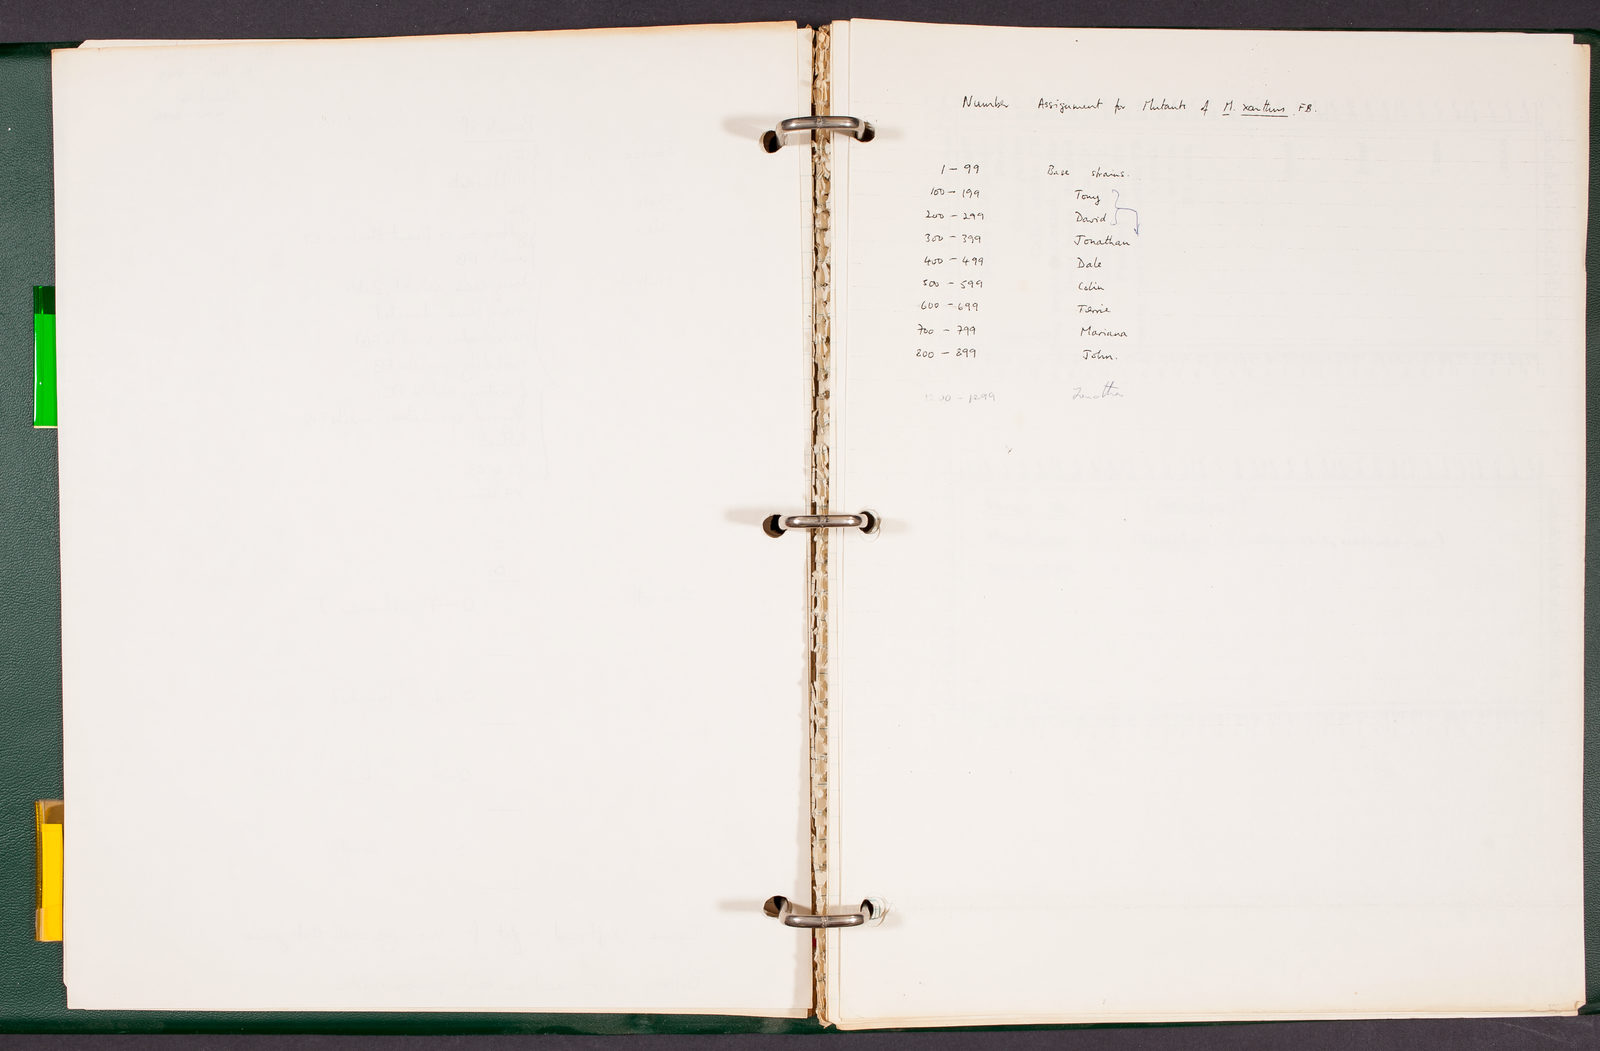 Number Assignment for Mutants of M. xanthus FB.
1 – 99 Base strains.
100 – 199 Tony
200 – 299 David
300 – 399 Jonathan
400 – 499 Dale
500 – 599 Colin
600 – 699 Terrie
700 – 799 Mariana
800 – 899 John.
1200 – 1299 Jonathan